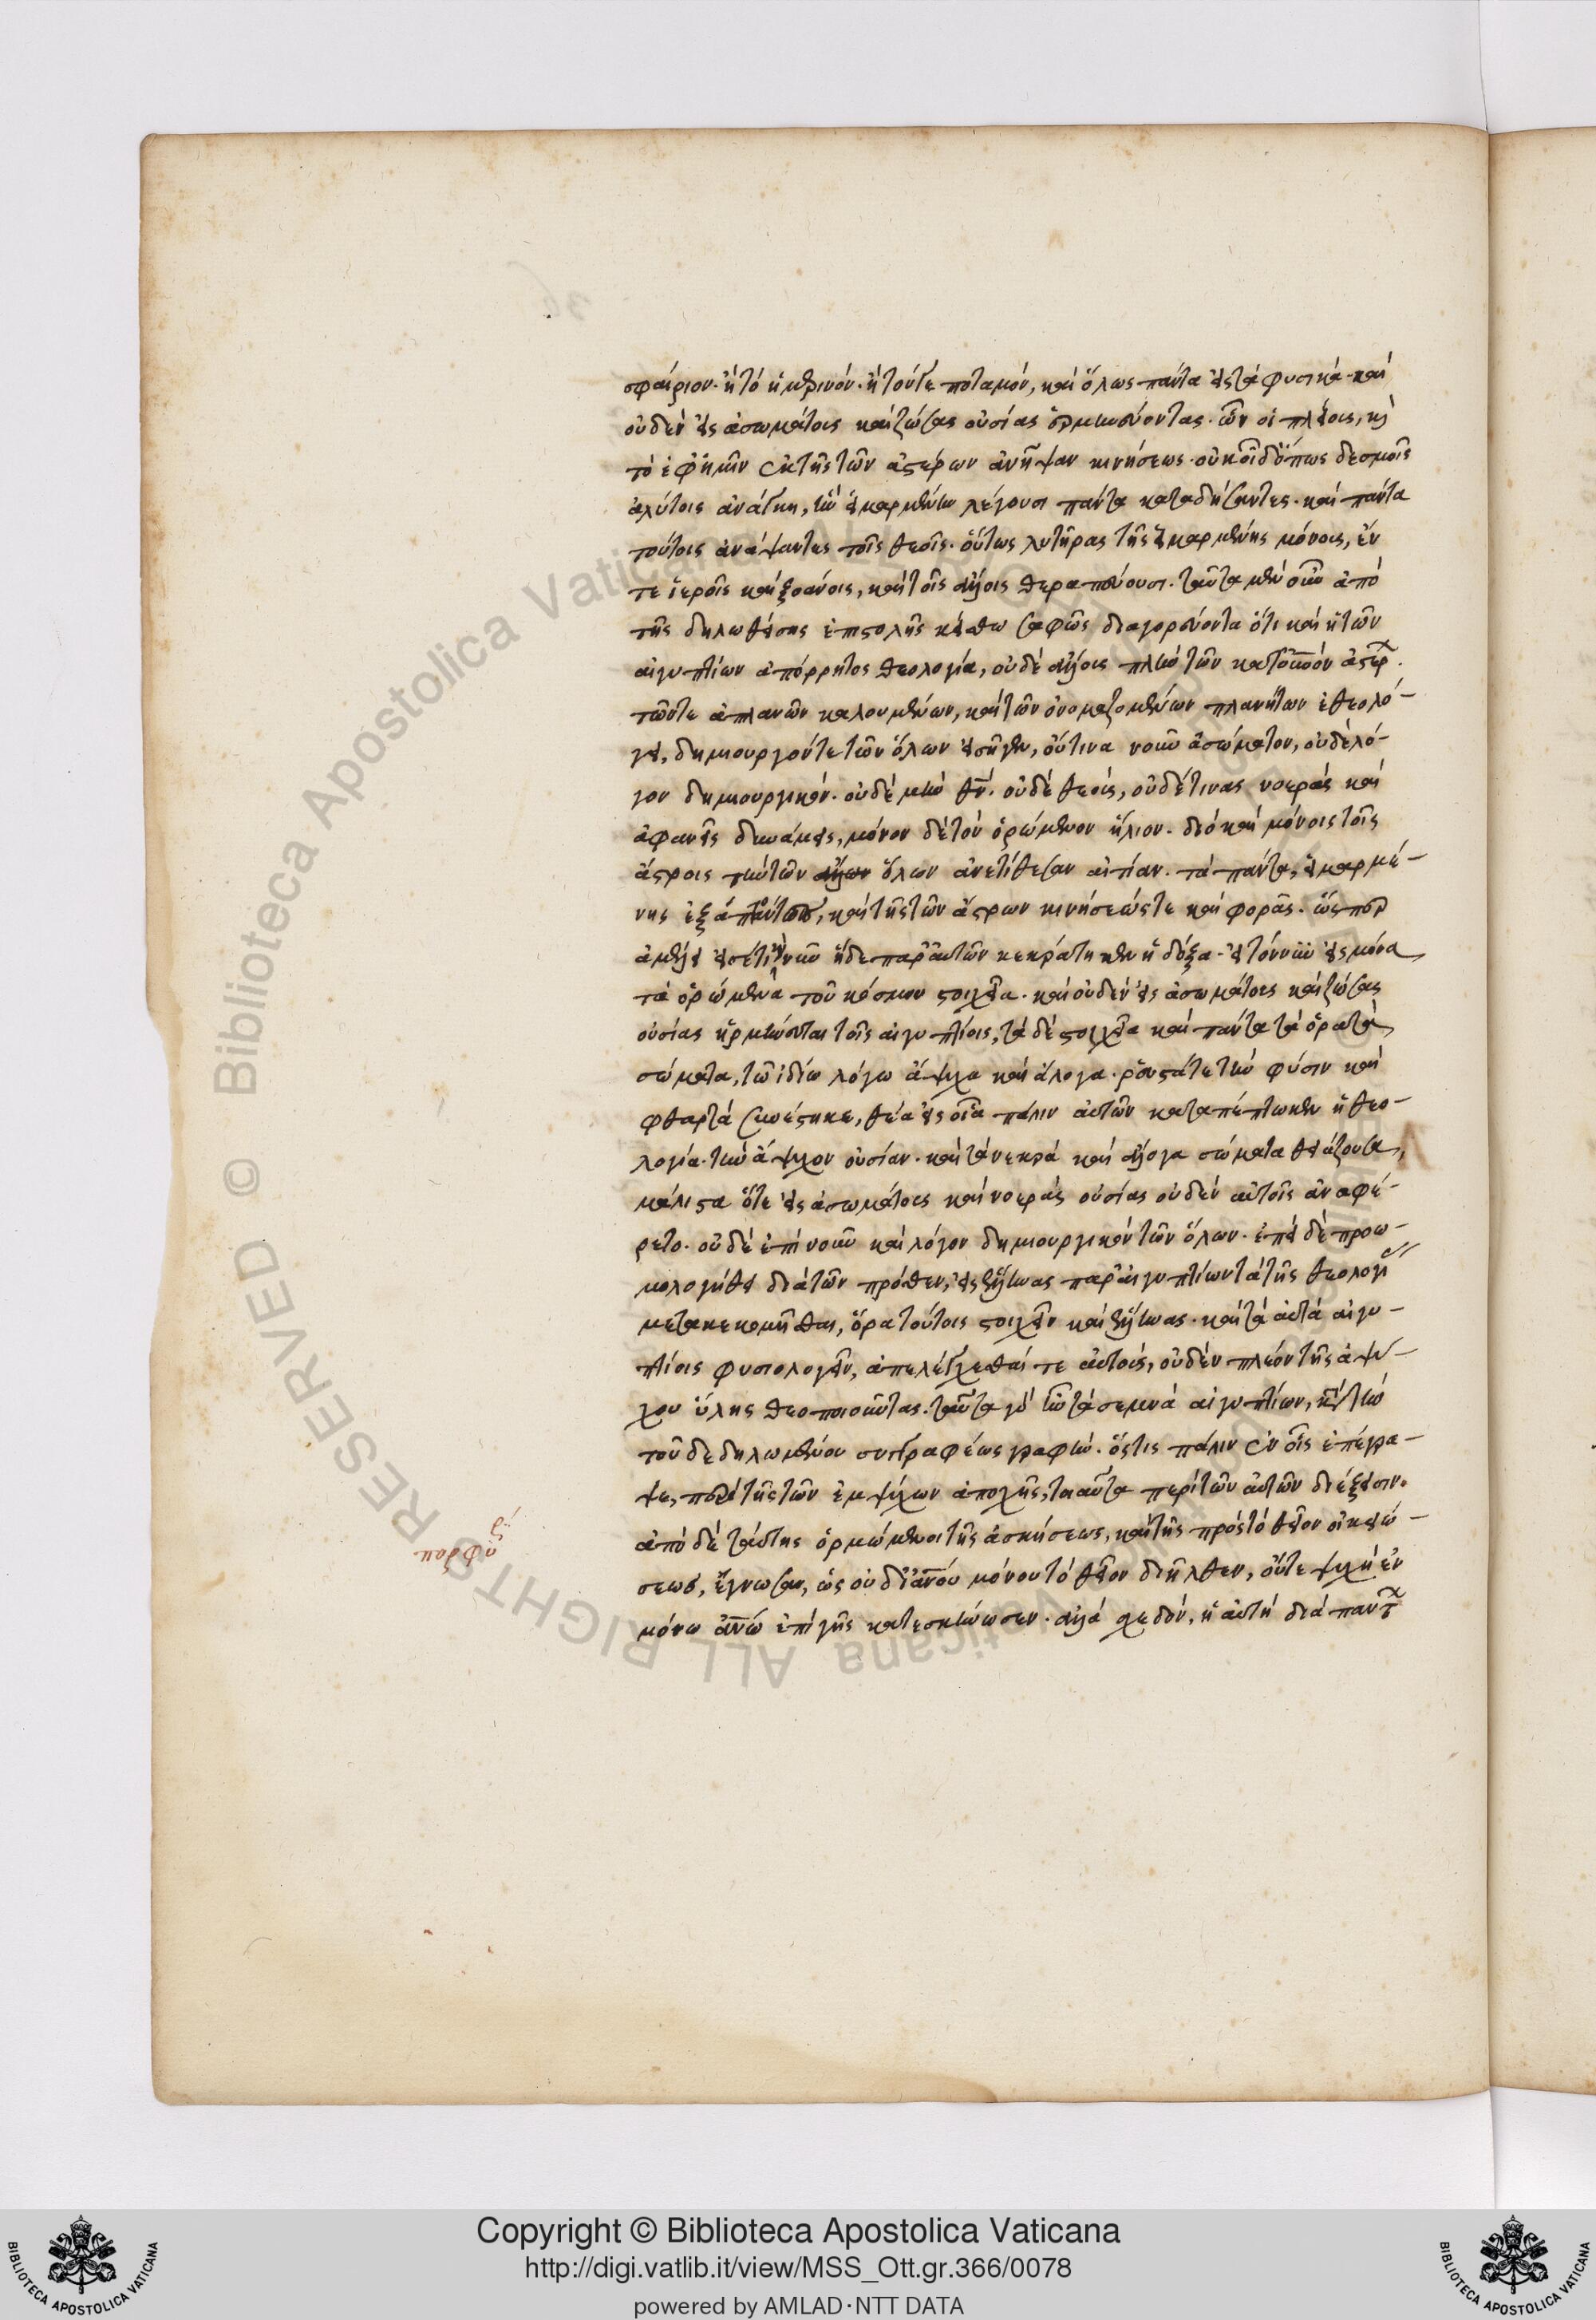 σφαίριον. ἢ τὸ ἡμερινόν. ἢ τόν γε ποταμόν, καὶ ὅλως πάντα εἰς τὰ φυσικά. καὶ
οὐδὲν εἰς ἀσωμάτους καὶ ζώσας οὐσίας ἑρμηνεύοντας. ὧν οἱ πλείους, καὶ
τὸ ἐφ' ἡμῖν ἐκ τῆς τῶν ἀστέρων ἀνῆψαν κινήσεως. οὐκ οἶδ' ὅπως δεσμοῖς
ἀλύτοις ἀνάγκῃ, ἣν εἱμαρμένην λέγουσι πάντα καταδήσαντες. καὶ πάντα
τούτοις ἀνάψαντες τοῖς θεοῖς. οὕτως λυτῆρας τῆς εἱμαρμένης μόνους, ἔν
τε ἱεροῖς καὶ ξοάνοις, καὶ τοῖς ἄλλοις θεραπεύουσι. ταῦτα μὲν οὖν ἀπὸ
τῆς δηλωθείσης ἐπιστολῆς κείσθω σαφῶς διαγορεύοντα ὅτι καὶ ἡ τῶν
αἰγυπτίων ἀπόρρητος θεολογία, οὐδὲ ἄλλους πλὴν τῶν κατ' οὐρανὸν ἀστέρων.
τῶν τε ἀπλανῶν καλουμένων, καὶ τῶν ὀνομαζομένων πλανήτων ἐθεολό-
γει, δημιουργόν τε τῶν ὅλων εἰσῆγεν, οὔ τινα νοῦν ἀσώματον, οὐδὲ λό-
γον δημιουργικόν. οὐδὲ μὴν θν. οὐδὲ θεούς, οὐδέ τινας νοεράς καὶ
ἀφανεῖς δυνάμεις, μόνον δὲ τὸν ὁρώμενον ἥλιον. διὸ καὶ μόνοις τοῖς
ἄστροις τὴν τῶν ὅλων ἀνετίθεσαν αἰτίαν. τὰ πάντα, εἱμαρμέ-
νης ἐξάπτοντες, καὶ τῆς τῶν ἄστρων κινήσεώς τε καὶ φορᾶς. ὥσπερ
ἀμέλει εἰσέτι καὶ νῦν ἥδε παρ' αὐτῶν κεκράτηκεν ἡ δόξα. εἰ τοίνυν εἰς μόνα
τὰ ὁρώμενα τοῦ κόσμου στοιχεῖα. καὶ οὐδὲν εἰς ἀσωμάτους καὶ ζώσας
οὐσίας ἡρμήνευται τοῖς αἰγυπτίοις, τὰ δὲ στοιχεῖα καὶ πάντα τὰ ὁρατὰ
σώματα, τῷ ἰδίῳ λόγῳ ἄψυχα καὶ ἄλογα. ῥευστά τε τὴν φύσιν καὶ
φθαρτὰ συνέστηκε, θέα εἰς οἷα πάλιν αὐτῶν καταπέπτωκεν ἡ θεο-
λογία. τὴν ἄψυχον οὐσίαν. καὶ τὰ νεκρὰ καὶ ἄλογα σώματα θειάζουσα,
μάλιστα ὅτε εἰς ἀσωμάτους καὶ νοερὰς οὐσίας οὐδὲν αὐτοῖς ἀνεφέ-
ρετο. οὐδὲ ἐπὶ νοῦν καὶ λόγον δημιουργικὸν τῶν ὅλων. ἐπεὶ δὲ προω-
μολογήθη διὰ τῶν πρόσθεν, εἰς ἕλληνας παρ' αἰγυπτίων τὰ τῆς θεολογίας
μετακεκομῆσθαι, ὥρα τούτοις στοιχεῖν καὶ ἕλληνας. κατὰ τὰ αὐτὰ αἰγυ-
πτίοις φυσιολογεῖν, ἀπελέγχεσθαί τε αὐτούς, οὐδὲν πλέον τῆς ἀψύ-
χου ὕλης θεοποιοῦντας. ταῦτα γὰρ ἦν τὰ σεμνὰ αἰγυπτίων, κατὰ τὴν
τοῦ δεδηλωμένου συγγραφέως γραφήν. ὅστις πάλιν ἐν οἷς ἐπέγρα-
ψε, περὶ τῆς τῶν ἐμψύχων ἀποχῆς, τοιαῦτα περὶ τῶν αὐτῶν διέξεισιν.
ἀπὸ δὲ ταύτης ὁρμώμενοι τῆς ἀσκήσεως, καὶ τῆς πρὸς τὸ θεῖον οἰκειώ-
σεως, ἔγνωσαν, ὡς οὐ δι' ἀνου μόνου τὸ θεῖον διῆλθεν, οὔτε ψυχὴ ἐν
μόνῳ ἀνω ἐπὶ γῆς κατεσκήνωσεν. ἀλλὰ σχεδόν, ἡ αὐτὴ διὰ πάντων